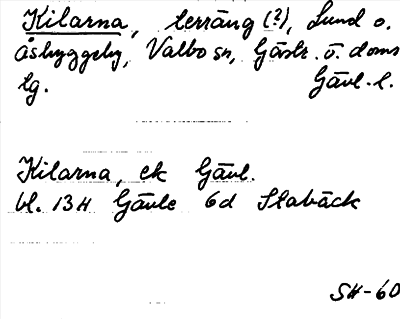 Kilarna, terräng (?), Lund o.
Åsbyggeby, Valbo sn, Gästr. ö. doms
lg. Gävl. l.
Kilarna, ek Gävl.
bl. 13H Gävle 6d Stabäck
SH-60